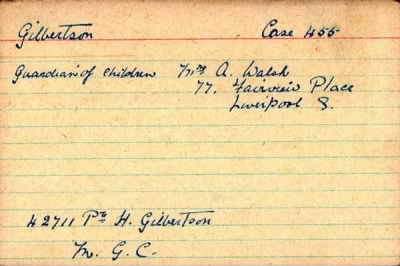 Gilbertson Case 455
Guardian of children Mrs A. Walsh
77, Fairview Place
Liverpool 8.
42711 Pte H. Gilbertson
M. G. C.